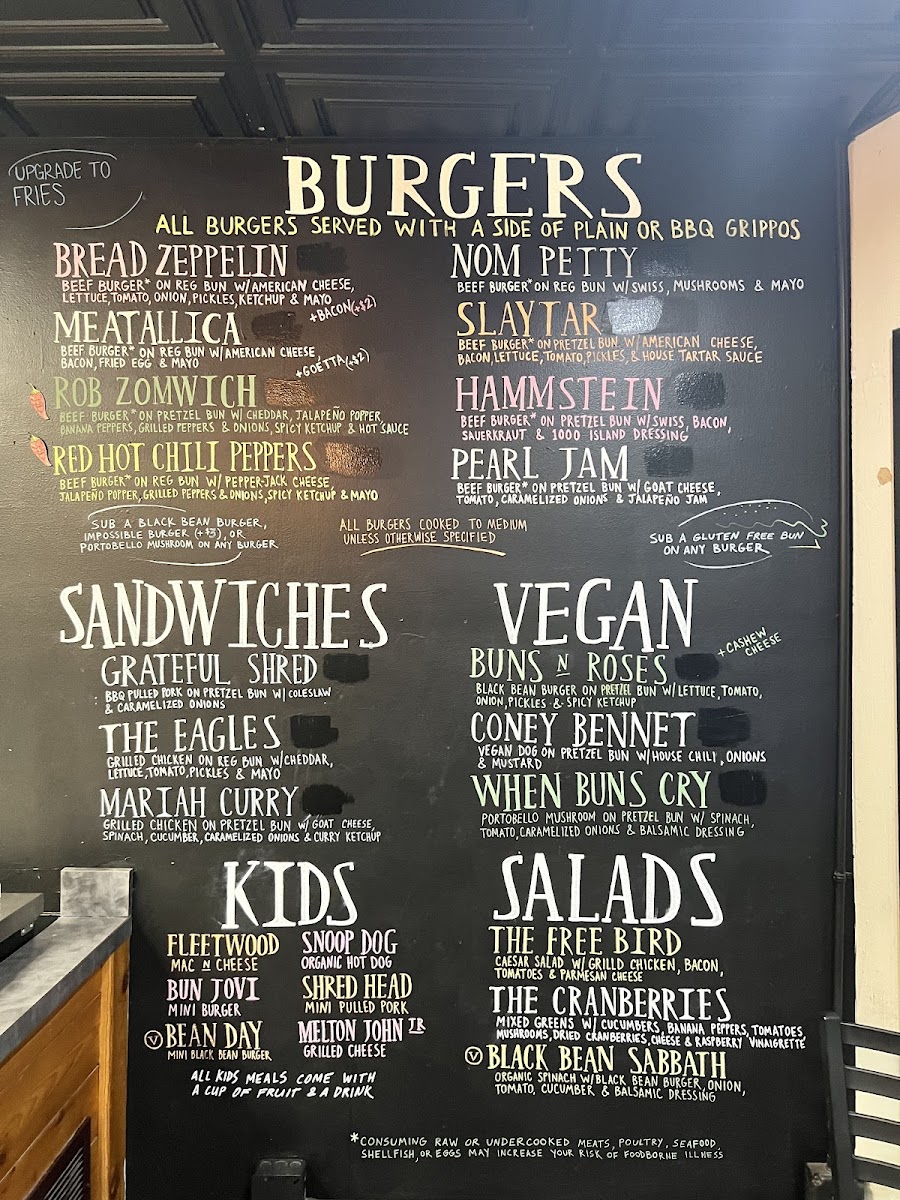 UPGRADE TO
FRIES
BURGERS
ALL BURGERS SERVED WITH A SIDE OF PLAIN OR BBQ GRIPPOS
BREAD ZEPPELIN
BEEF BURGER* ON REG BUN W/AMERICAN CHEESE,
LETTUCE, TOMATO, ONION, PICKLES, KETCHUP & MAYO
+BACON(+$2)
MEATALLICA
BEEF BURGER* ON REG BUN W/AMERICAN CHEESE,
BACON, FRIED EGG & MAYO
+GOETTA(+$2)
ROB ZOMWICH
BEEF BURGER* ON PRETZEL BUN W/ CHEDDAR, JALAPEÑO POPPER,
BANANA PEPPERS, GRILLED PEPPERS & ONIONS, SPICY KETCHUP & HOT SAUCE
RED HOT CHILI PEPPERS
BEEF BURGER* ON REG BUN W/ PEPPER-JACK CHEESE,
JALAPEÑO POPPER, GRILLED PEPPERS & ONIONS, SPICY KETCHUP & MAYO
NOM PETTY
BEEF BURGER* ON REG BUN W/SWISS, MUSHROOMS & MAYO
SLAYTAR
BEEF BURGER* ON PRETZEL BUN W/AMERICAN CHEESE,
BACON, LETTUCE, TOMATO, PICKLES, & HOUSE TARTAR SAUCE
HAMMSTEIN
BEEF BURGER* ON PRETZEL BUN W/SWISS, BACON,
SAUERKRAUT & 1000 ISLAND DRESSING
PEARL JAM
BEEF BURGER* ON PRETZEL BUN W/ GOAT CHEESE,
TOMATO, CARAMELIZED ONIONS & JALAPEÑO JAM
SUB A BLACK BEAN BURGER,
IMPOSSIBLE BURGER (+$3), OR
PORTOBELLO MUSHROOM ON ANY BURGER
ALL BURGERS COOKED TO MEDIUM
UNLESS OTHERWISE SPECIFIED
SUB A GLUTEN FREE BUN
ON ANY BURGER
SANDWICHES
GRATEFUL SHRED
BBQ PULLED PORK ON PRETZEL BUN W/ COLESLAW
& CARAMELIZED ONIONS
THE EAGLES
GRILLED CHICKEN ON REG BUN W/CHEDDAR,
LETTUCE, TOMATO, PICKLES & MAYO
MARIAH CURRY
GRILLED CHICKEN ON PRETZEL BUN W/ GOAT CHEESE,
SPINACH, CUCUMBER, CARAMELIZED ONIONS & CURRY KETCHUP
VEGAN
+CASHEW
CHEESE
BUNS N ROSES
BLACK BEAN BURGER ON PRETZEL BUN W/ LETTUCE, TOMATO,
ONION, PICKLES & SPICY KETCHUP
CONEY BENNET
VEGAN DOG ON PRETZEL BUN W/ HOUSE CHILI, ONIONS
& MUSTARD
WHEN BUNS CRY
PORTOBELLO MUSHROOM ON PRETZEL BUN W/ SPINACH,
TOMATO, CARAMELIZED ONIONS & BALSAMIC DRESSING
KIDS
FLEETWOOD
MAC N CHEESE
BUN JOVI
MINI BURGER
V BEAN DAY
MINI BLACK BEAN BURGER
SNOOP DOG
ORGANIC HOT DOG
SHRED HEAD
MINI PULLED PORK
MELTON JOHN JR
GRILLED CHEESE
ALL KIDS MEALS COME WITH
A CUP OF FRUIT & A DRINK
SALADS
THE FREE BIRD
CAESAR SALAD W/ GRILLD CHICKEN, BACON,
TOMATOES & PARMESAN CHEESE
THE CRANBERRIES
MIXED GREENS W/ CUCUMBERS, BANANA PEPPERS, TOMATOES
MUSHROOMS, DRIED CRANBERRIES, CHEESE & RASPBERRY VINAIGRETTE
V BLACK BEAN SABBATH
ORGANIC SPINACH W/BLACK BEAN BURGER, ONION,
TOMATO, CUCUMBER & BALSAMIC DRESSING
*CONSUMING RAW OR UNDERCOOKED MEATS, POULTRY, SEAFOOD,
SHELLFISH, OR EGGS MAY INCREASE YOUR RISK OF FOODBORNE ILLNESS